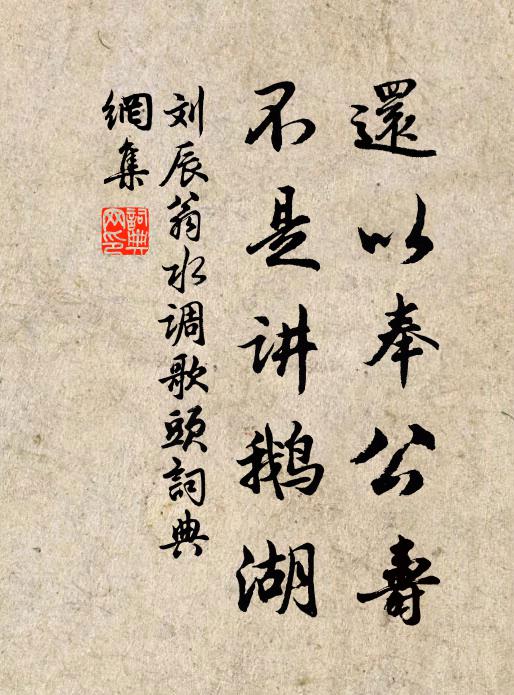 還以奉公壽
不是讲鹅湖
刘辰翁水调歌頭詞典
網集
詞典
网印